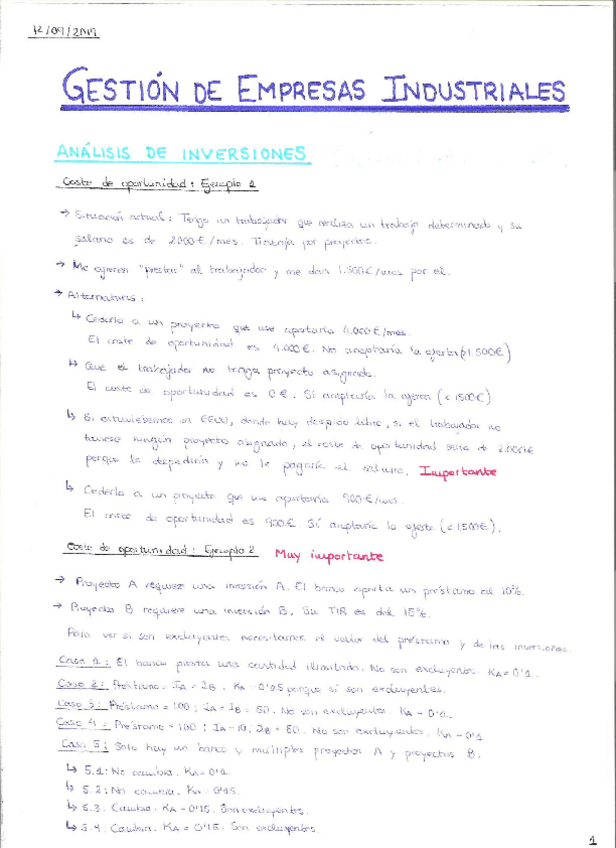 12/09/2019
GESTIÓN DE EMPRESAS INDUSTRIALES
ANÁLISIS DE INVERSIONES
Coste de oportunidad: Ejemplo 1
→ Situación actual: Tengo un trabajador que realiza un trabajo determinado y su
salario es de 2000€/mes. Trabaja por proyectos.
→ Me ofrecen "prestar" al trabajador y me dan 1.500€/mes por él.
→ Alternativas:
↳ Cederlo a un proyecto que me aportaría 4.000€/mes.
El coste de oportunidad es 4.000€. No aceptaría la oferta (1.500€)
↳ Que el trabajador no tenga proyecto asignado.
El coste de oportunidad es 0€. Sí aceptaría la oferta (<1500€)
↳ Si estuviésemos en EEUU, donde hay despido libre, si el trabajador no
tuviese ningún proyecto asignado, el coste de oportunidad sería de 2.000€
porque lo despediría y no le pagaría el salario. Importante
↳ Cederlo a un proyecto que me aportaría 900€/mes.
El coste de oportunidad es 900€. Sí aceptaría la oferta (<1500€).
Coste de oportunidad: Ejemplo 2 Muy importante
→ Proyecto A requiere una inversión A. El banco aporta un préstamo al 10%.
→ Proyecto B requiere una inversión B. Su TIR es del 15%.
Para ver si son excluyentes necesitamos el valor del préstamo y de las inversiones.
Caso 1: El banco presta una cantidad ilimitada. No son excluyentes. KA = 0'1.
Caso 2: Préstamo = IA = IB. KA = 0'15 porque sí son excluyentes.
Caso 3: Préstamo = 100; IA = IB = 50. No son excluyentes. KA = 0'1.
Caso 4: Préstamo = 100; IA = 10; IB = 50. No son excluyentes. KA = 0'1
Caso 5: Solo hay un banco y múltiples proyectos A y proyectos B.
↳ 5.1: No cambia. KA = 0'1.
↳ 5.2: No cambia. KA = 0'15.
↳ 5.3. Cambia. KA = 0'15. Son excluyentes.
↳ 5.4: Cambia. KA = 0'15. Son excluyentes.
1